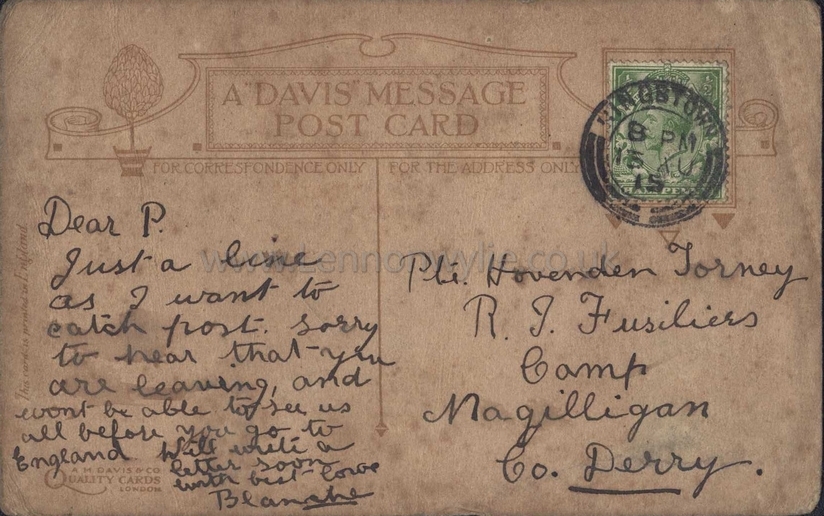 A "DAVIS" MESSAGE
POST CARD
FOR CORRESPONDENCE ONLY
FOR THE ADDRESS ONLY
HALFPENNY
KINGSTOWN
8 PM
15 AU
15
Dear P.
Just a line
as I want to
catch post. Sorry
to hear that you
are leaving, and
wont be able to see us
all before you go to
England Will write a
letter soon
with best love
Blanche
Pti. Hovenden Torney
R. I. Fusiliers
Camp
Magilligan
Co. Derry.
This card is printed in England
A.M. DAVIS & CO
QUALITY CARDS
LONDON
www.Lennonwylie.co.uk